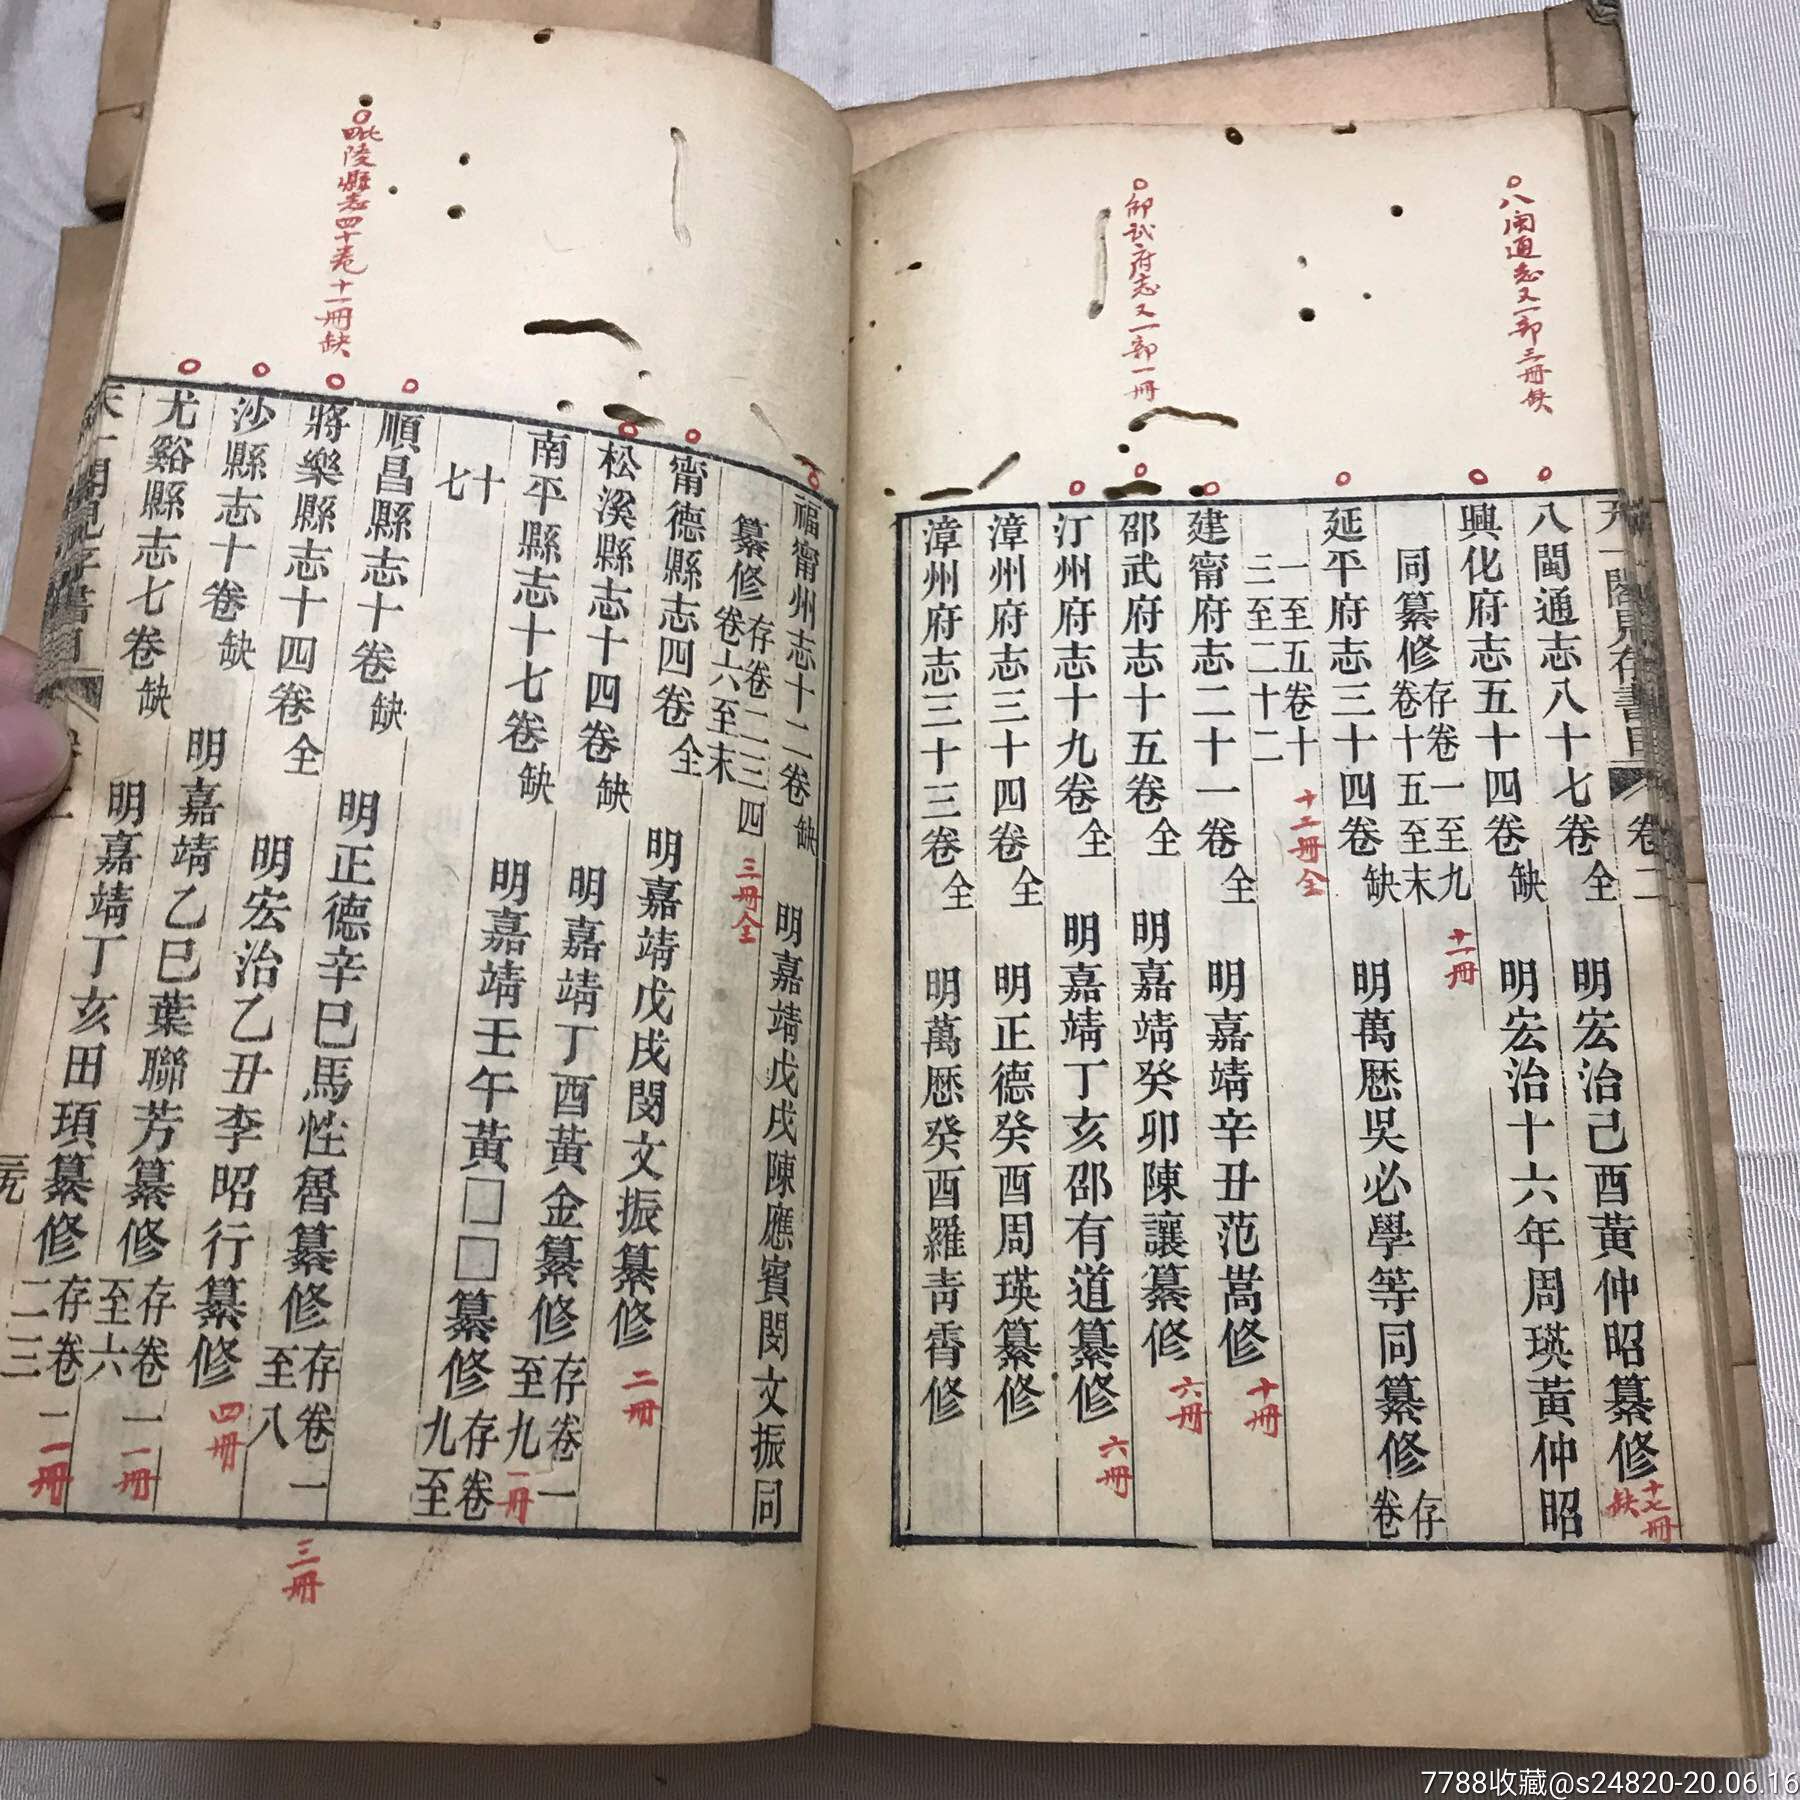 八閩通志又一部三冊缺
邵武府志又一部一冊
天一閣見存書目 卷二
八閩通志八十七卷全 明宏治己酉黃仲昭纂修 十七冊缺
興化府志五十四卷缺 明宏治十六年周瑛黃仲昭
同纂修存卷一至九卷十五至末 十一冊
延平府志三十四卷缺 明萬歷吳必學等同纂修存卷
一至五卷十三至二十二 十二冊全
建甯府志二十一卷全 明嘉靖辛丑范嵩修 十冊
邵武府志十五卷全 明嘉靖癸卯陳讓纂修 六冊
汀州府志十九卷全 明嘉靖丁亥邵有道纂修 六冊
漳州府志三十四卷全 明正德癸酉周瑛纂修
漳州府志三十三卷全 明萬歷癸酉羅青霄修
毗陵縣志四十卷十一冊缺
福甯州志十二卷缺 明嘉靖戊戌陳應賓閔文振同
纂修存卷二三四卷六至末 三冊全
甯德縣志四卷全 明嘉靖戊戌閔文振纂修 二冊
松溪縣志十四卷缺 明嘉靖丁酉黃金纂修存卷一至九 一冊
南平縣志十七卷缺 明嘉靖壬午黃□□纂修存卷九至
十七
順昌縣志十卷缺 明正德辛巳馬性魯纂修存卷一至八 三冊
將樂縣志十四卷全 明宏治乙丑李昭行纂修 四冊
沙縣志十卷缺 明嘉靖乙巳葉聯芳纂修存卷一至六 一冊
尤谿縣志七卷缺 明嘉靖丁亥田頊纂修存卷一二三 一冊
天一閣見存書目 卷二